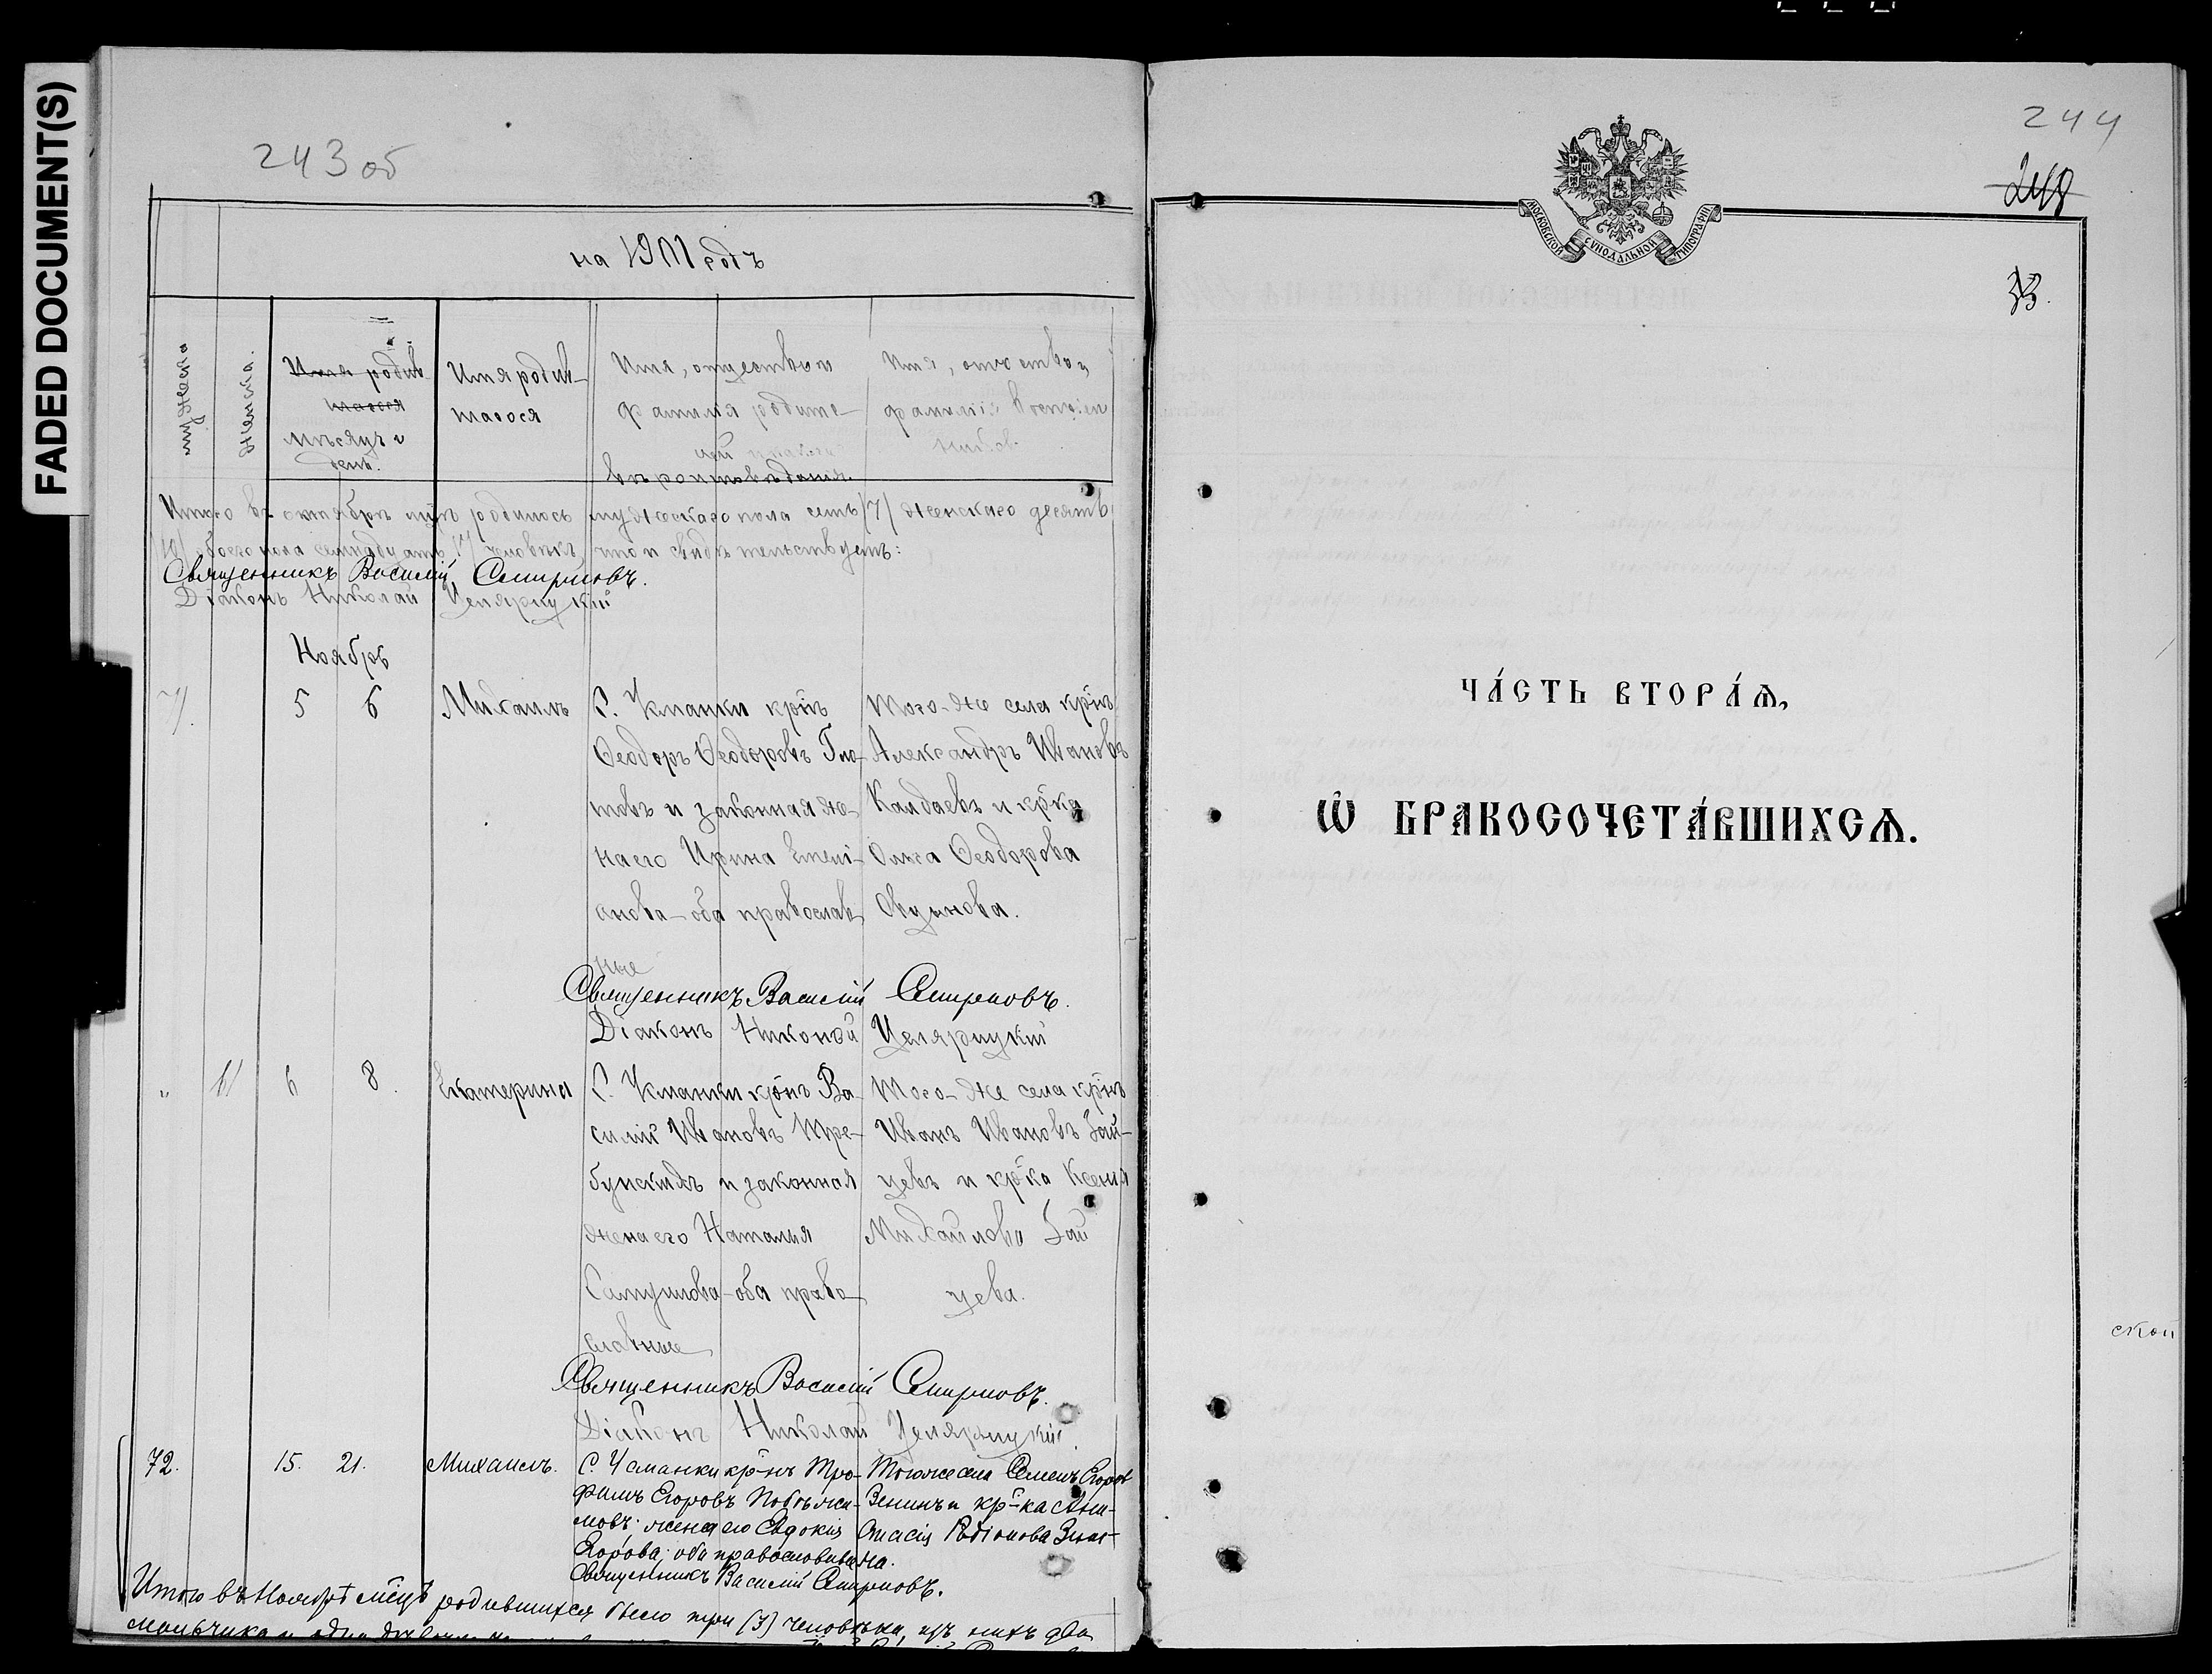 FADED DOCUMENT(S)
243 об
на 1901 годъ
мужеска
женска.
Имя родив-
шагося
мѣсяцъ и
день.
Имя родив-
шагося
Имя, отчество и
фамилія родите-
лей и какого
вѣроисповѣданія.
Имя, отчество и
фамилія воспріем
никовъ.
Итого въ октябрѣ мцѣ родилось мужескаго пола семь /7/ женскаго десять
/10/ обоего пола семнадцать /17/ человѣкъ, что и свидѣтельствуетъ:
Священникъ Василій Смирновъ.
Діаконъ Николай
Ноябрь
71.
5
6
Михаилъ
С. крнъ
Ѳеодоръ Ѳеодоровъ Гло-
товъ и законная же-
на его Ирина Емелі-
анова - оба православ
ные
Того-же села крнъ
Александръ Ивановъ
Калдаевъ и крка
Ольга Ѳеодорова
Священникъ Василій Смирновъ.
Діаконъ Николай
"
61
6
8.
Екатерина
С. крнъ Ва-
силій Ивановъ Тре-
бунскихъ и законная
жена его Наталія
оба право-
славные
Того-же села крнъ
Иванъ Ивановъ Зай-
цевъ и крка Ксенія
Михайлова Зай
цева.
Священникъ Василій Смирновъ.
Діаконъ Николай
72.
15.
21.
Михаилъ.
С. кр-нъ Тро-
фимъ Егоровъ
мовъ; жена его Евдокія
Егорова; оба православные
Того же села Семенъ Егоровъ
Зенинъ и кр-ка Ана-
стасія Родіонова Зени-
на.
Священникъ Василій Смирновъ.
Итого въ Ноябрѣ мѣсцѣ родившихся было три (3) человѣка, изъ нихъ два
мальчика и одна
244
248
33.
МОСКОВСКОЙ СѴНОДАЛЬНОЙ ТИПОГРАФІИ
ЧА́СТЬ ВТОРА́Ѧ,
Ѽ БРАКОСОЧЕТА́ВШИХСѦ.
ской